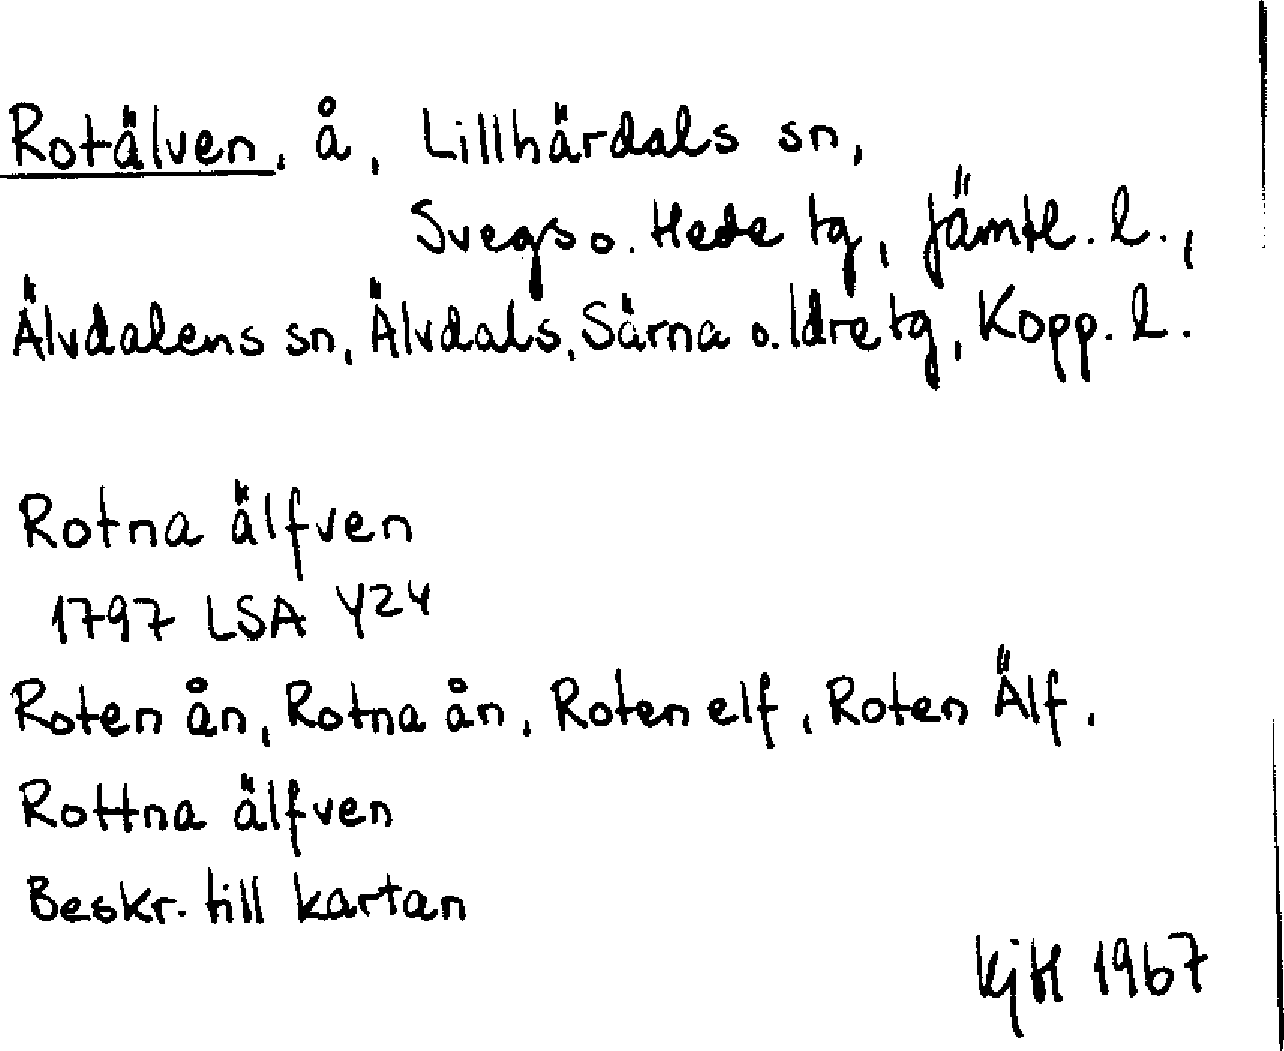 Rotälven, å, Lillhärdals sn,
Svegs o. Hede tg, Jämtl. l.,
Älvdalens sn, Älvdals, Särna o. Idre tg, Kopp. l.
Rotna älfven
1797 LSA Y24
Roten ån, Rotna ån, Roten elf, Roten Älf,
Rottna älfven
Beskr. till kartan
KjH 1967